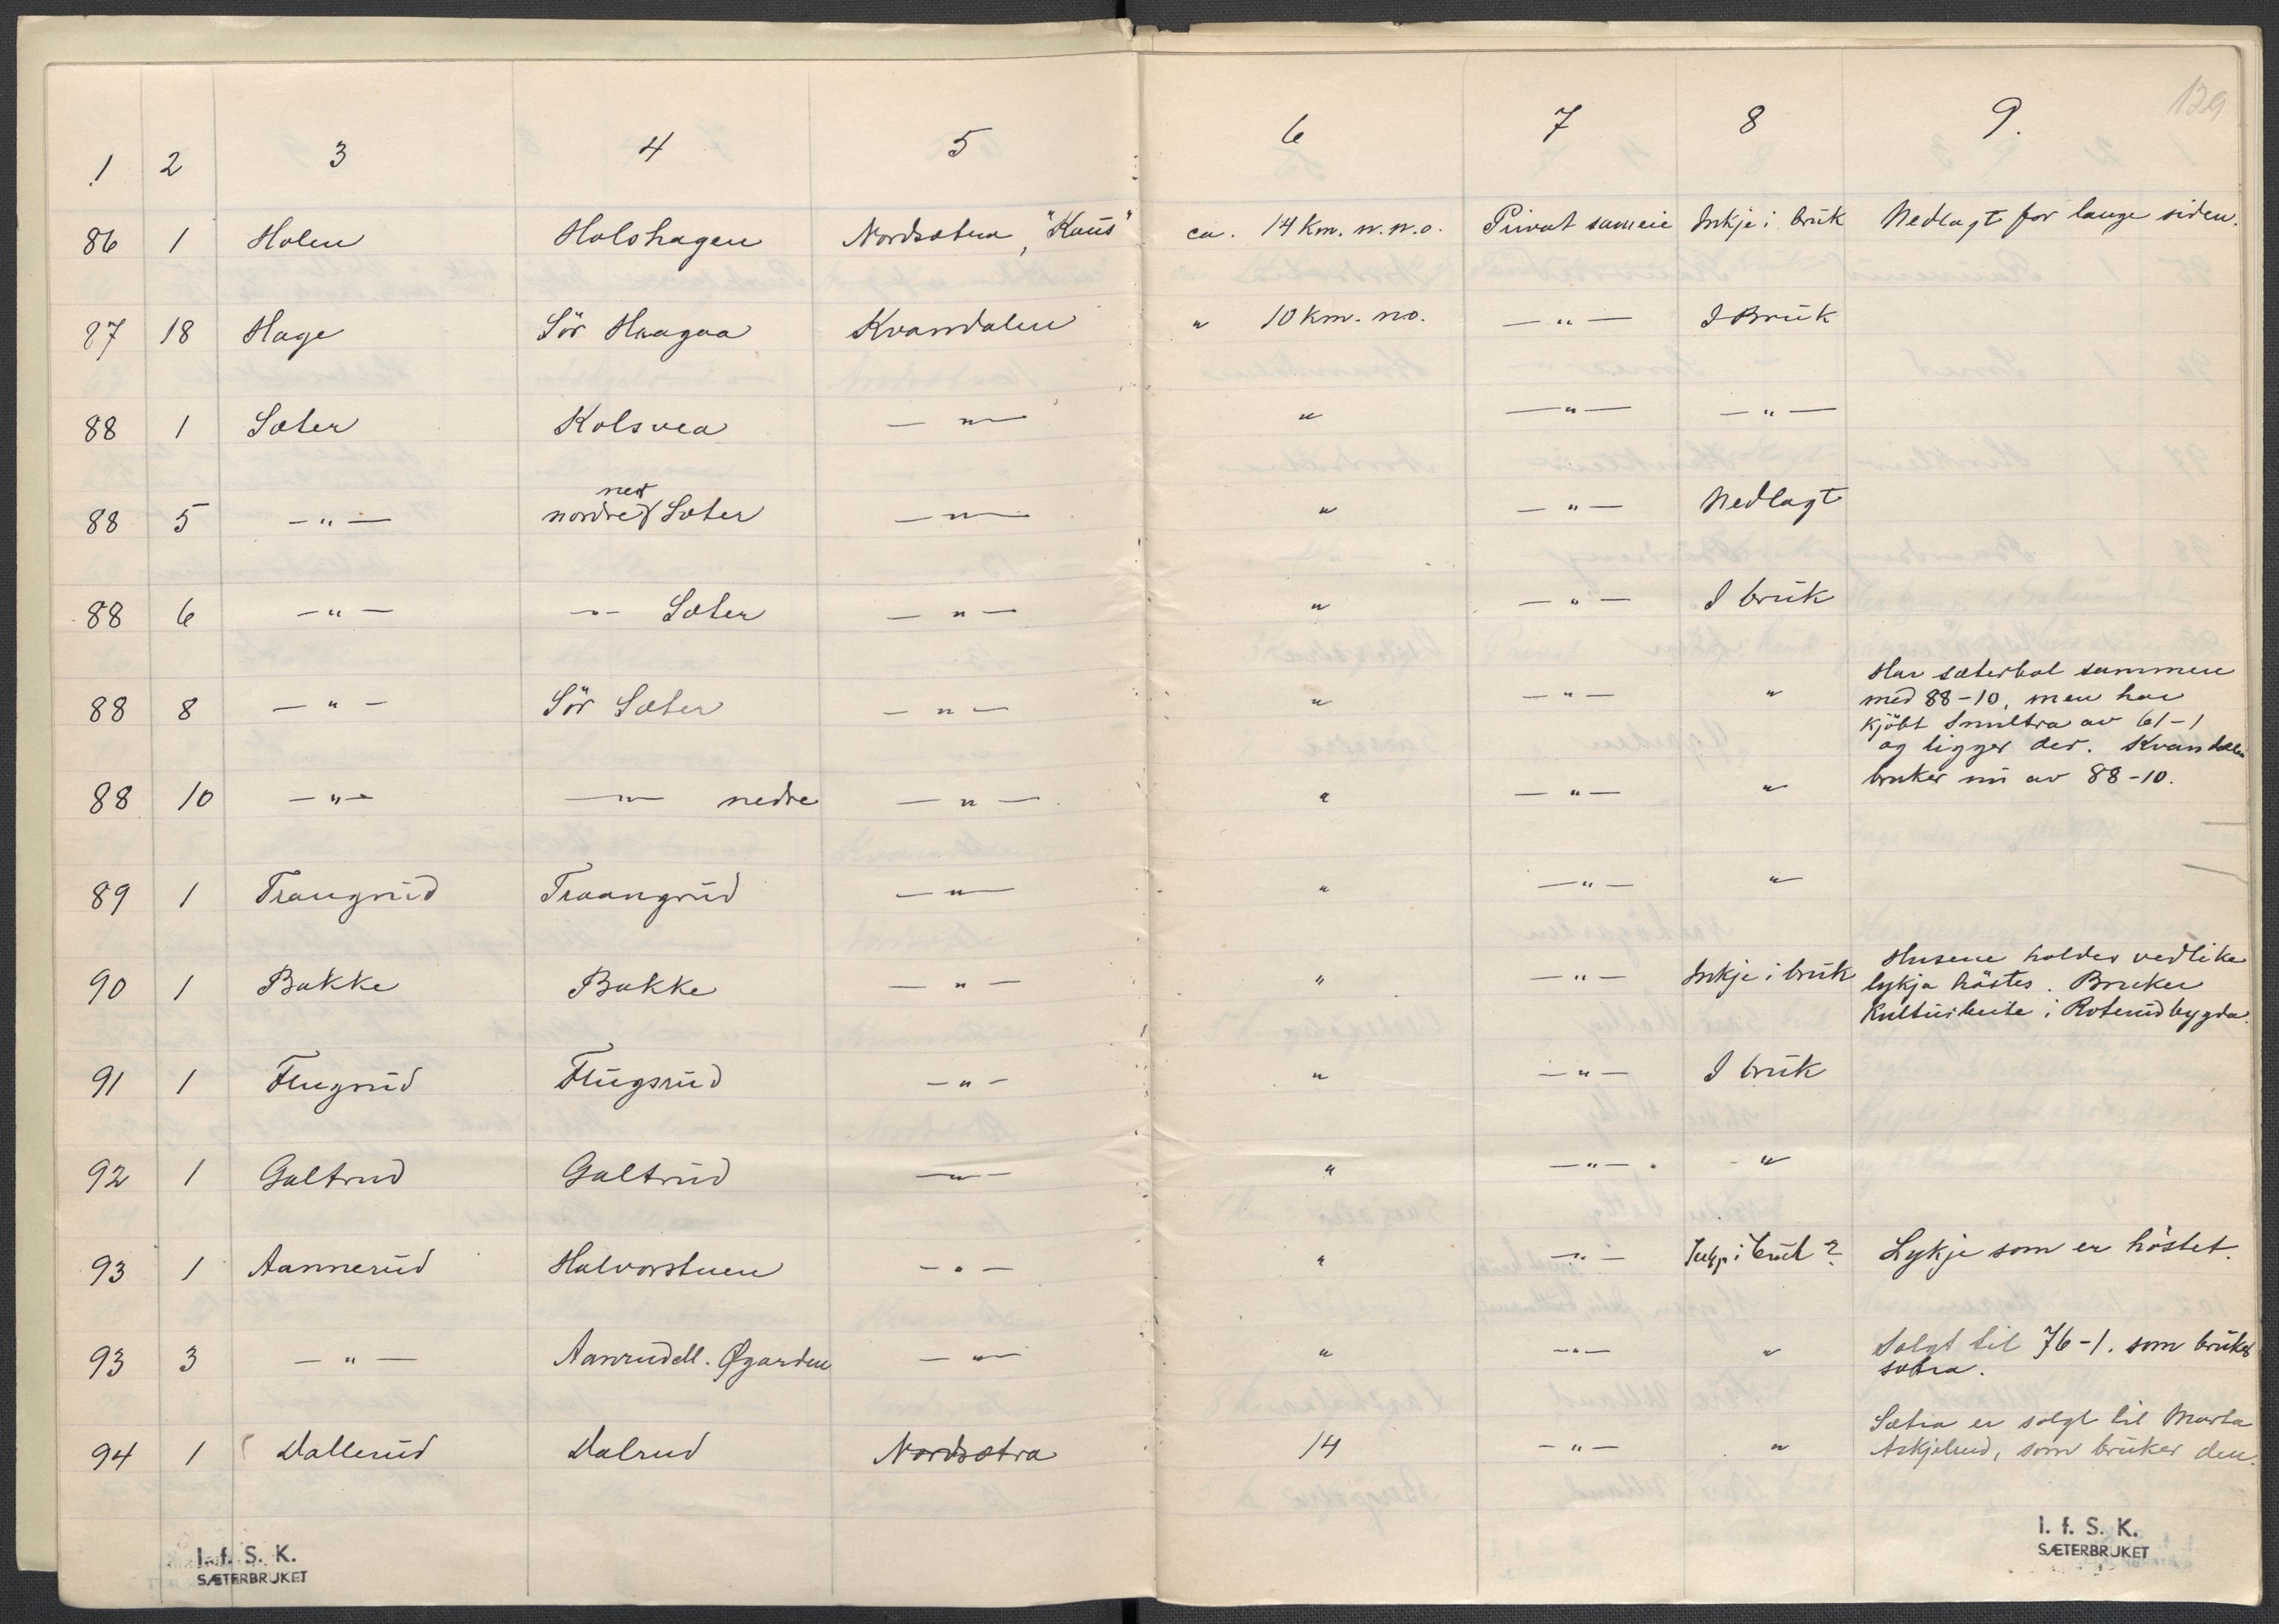 129
1 2 3 4 5 6 7 8 9.
86 1 Holen Holshagen Nordsætra, "Kaus" ca. 14 km. n.n.o. Privat sameie Inkje i bruk Nedlagt for lange siden.
87 18 Hage Sör Haagaa Kvandalen " 10 km. no. —"— I Bruk
88 1 Sæter Kolsvea —"— " —"— —"—
ned
88 5 —"— nordre Sæter —"— " —"— Nedlagt
88 6 —"— —"— Sæter —"— " —"— I bruk
Har sæterbol sammen
88 8 —"— Sör Sæter —"— " —"— " med 88-10, men har
kjöbt Smultra av 61-1
og ligger der. Kvandalen
88 10 —"— —"— nedre —"— " —"— " bruker nu av 88-10.
89 1 Trangrud Traangrud —"— " —"— "
Husene holdes vedlike
90 1 Bakke Bakke —"— " —"— Inkje i bruk lykja höstes. Bruker
Kulturbeite i Roterudbygda.
91 1 Flugrud Flugsrud —"— " —"— I bruk
92 1 Galtrud Galtrud —"— " —"— . "
93 1 Aannerud Halvorstuen —"— " —"— Inkje i bruk? Lykje som er höstet.
93 3 —"— Aanrudell. Øgarden —"— " —"— " Solgt til 76-1. som bruker
sætra.
Sætra er solgt til Marta
94 1 Dallerud Dalrud Nordsætra 14 —"— " Askjelrud, som bruker den.
I. f. S. K.
SÆTERBRUKET
I. f. S. K.
SÆTERBRUKET